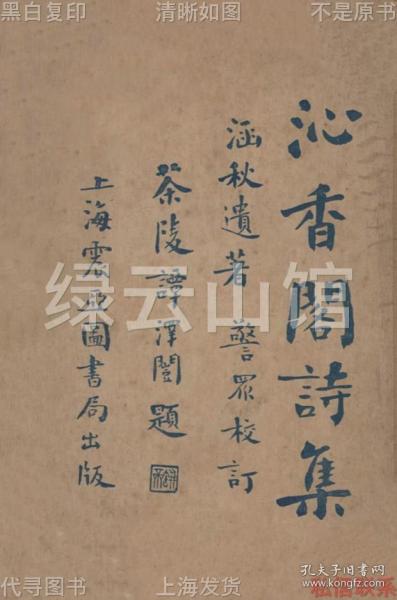 黑白复印 清晰如图 不是原书
沁香閣詩集
涵秋遺著 警眾校訂
茶陵譚澤闓題
上海震亞圖書局出版
绿云山馆
孔夫子旧书网
www.kongfz.com
代寻图书 上海发货 私信联系